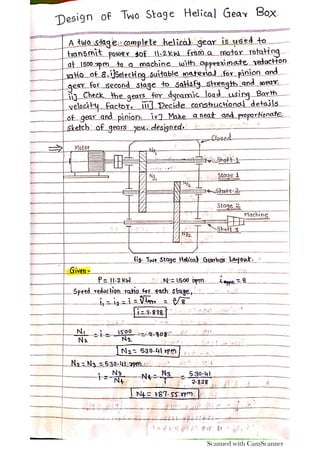 Design of Two Stage Helical Gear Box
A two stage complete helical gear is used to
transmit power of 11.2 KW from a motor rotating
at 1500 rpm to a machine with approximate reduction
ratio of 8. i] Selecting suitable material for pinion and
gear for second stage to satisfy strength and wear.
ii] Check the gears for dynamic load using Barth
velocity factor. iii] Decide constructional details
of gear and pinion. iv] Make a neat and proportionate
sketch of gears you designed.
Closed
Motor
Shaft 1
Stage 1
Shaft 2
Stage 2
Machine
Shaft 3
Fig. Two Stage Helical Gearbox Layout.
Given:-
P = 11.2 KW N = 1500 rpm = 8
Speed reduction ratio for each stage,
i₁ = i₂ = i = = √8
i = 2.828
N₁/N₂ = i = 1500/N₂ = 2.828
N₂ = 530.41 rpm
N₂ = N₃ = 530.41 rpm
i = N₃/N₄ N₄ = N₃/i = 530.41/2.828
N₄ = 187.55 rpm
Scanned with CamScanner